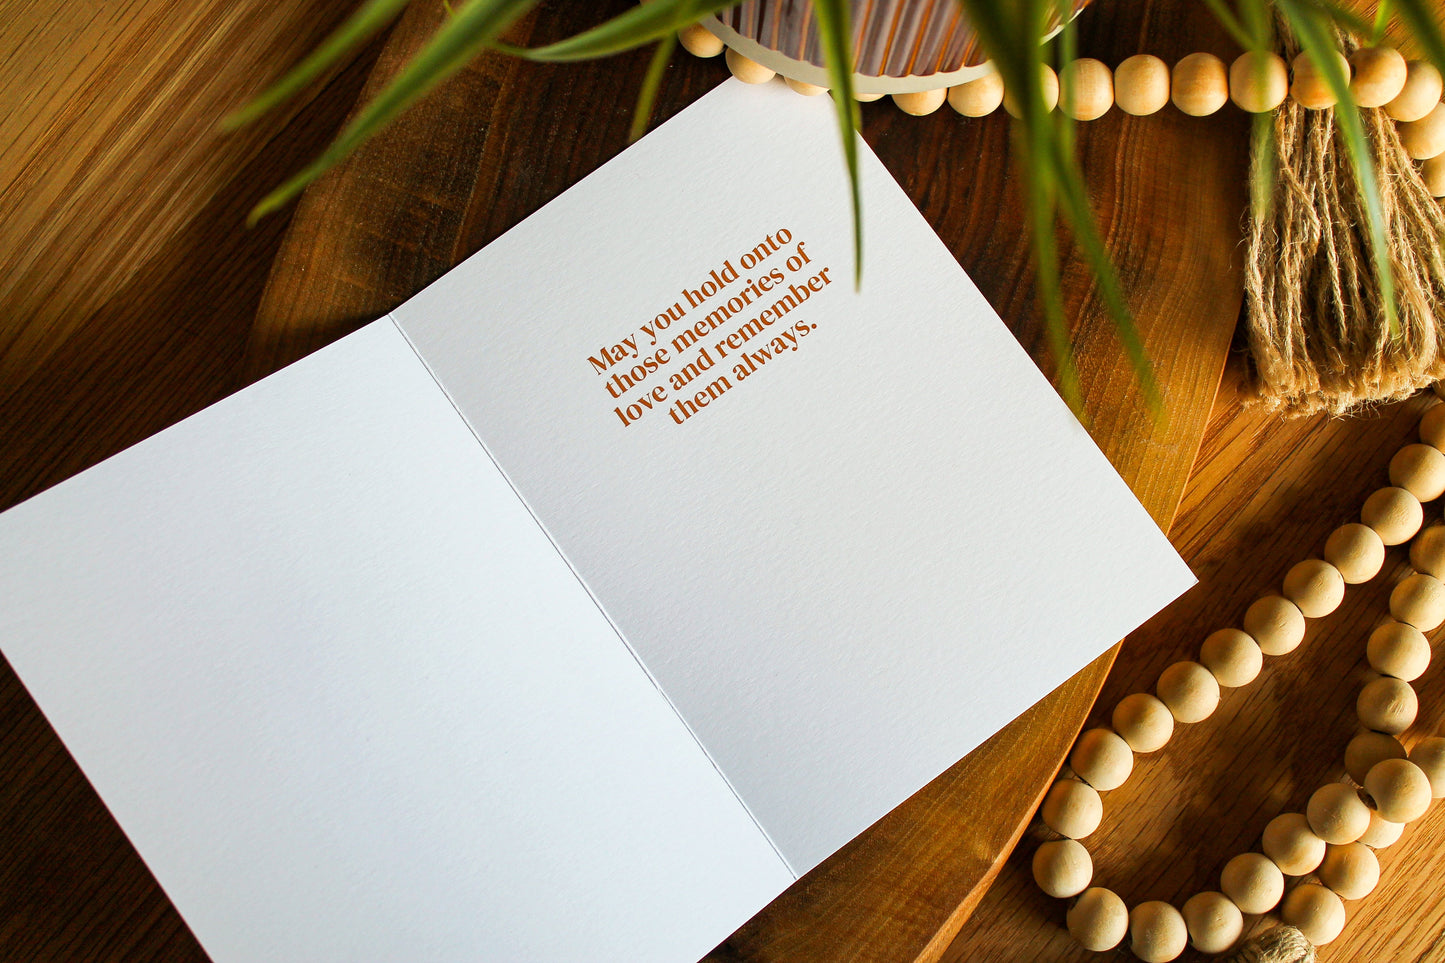 May you hold onto
those memories of
love and remember
them always.